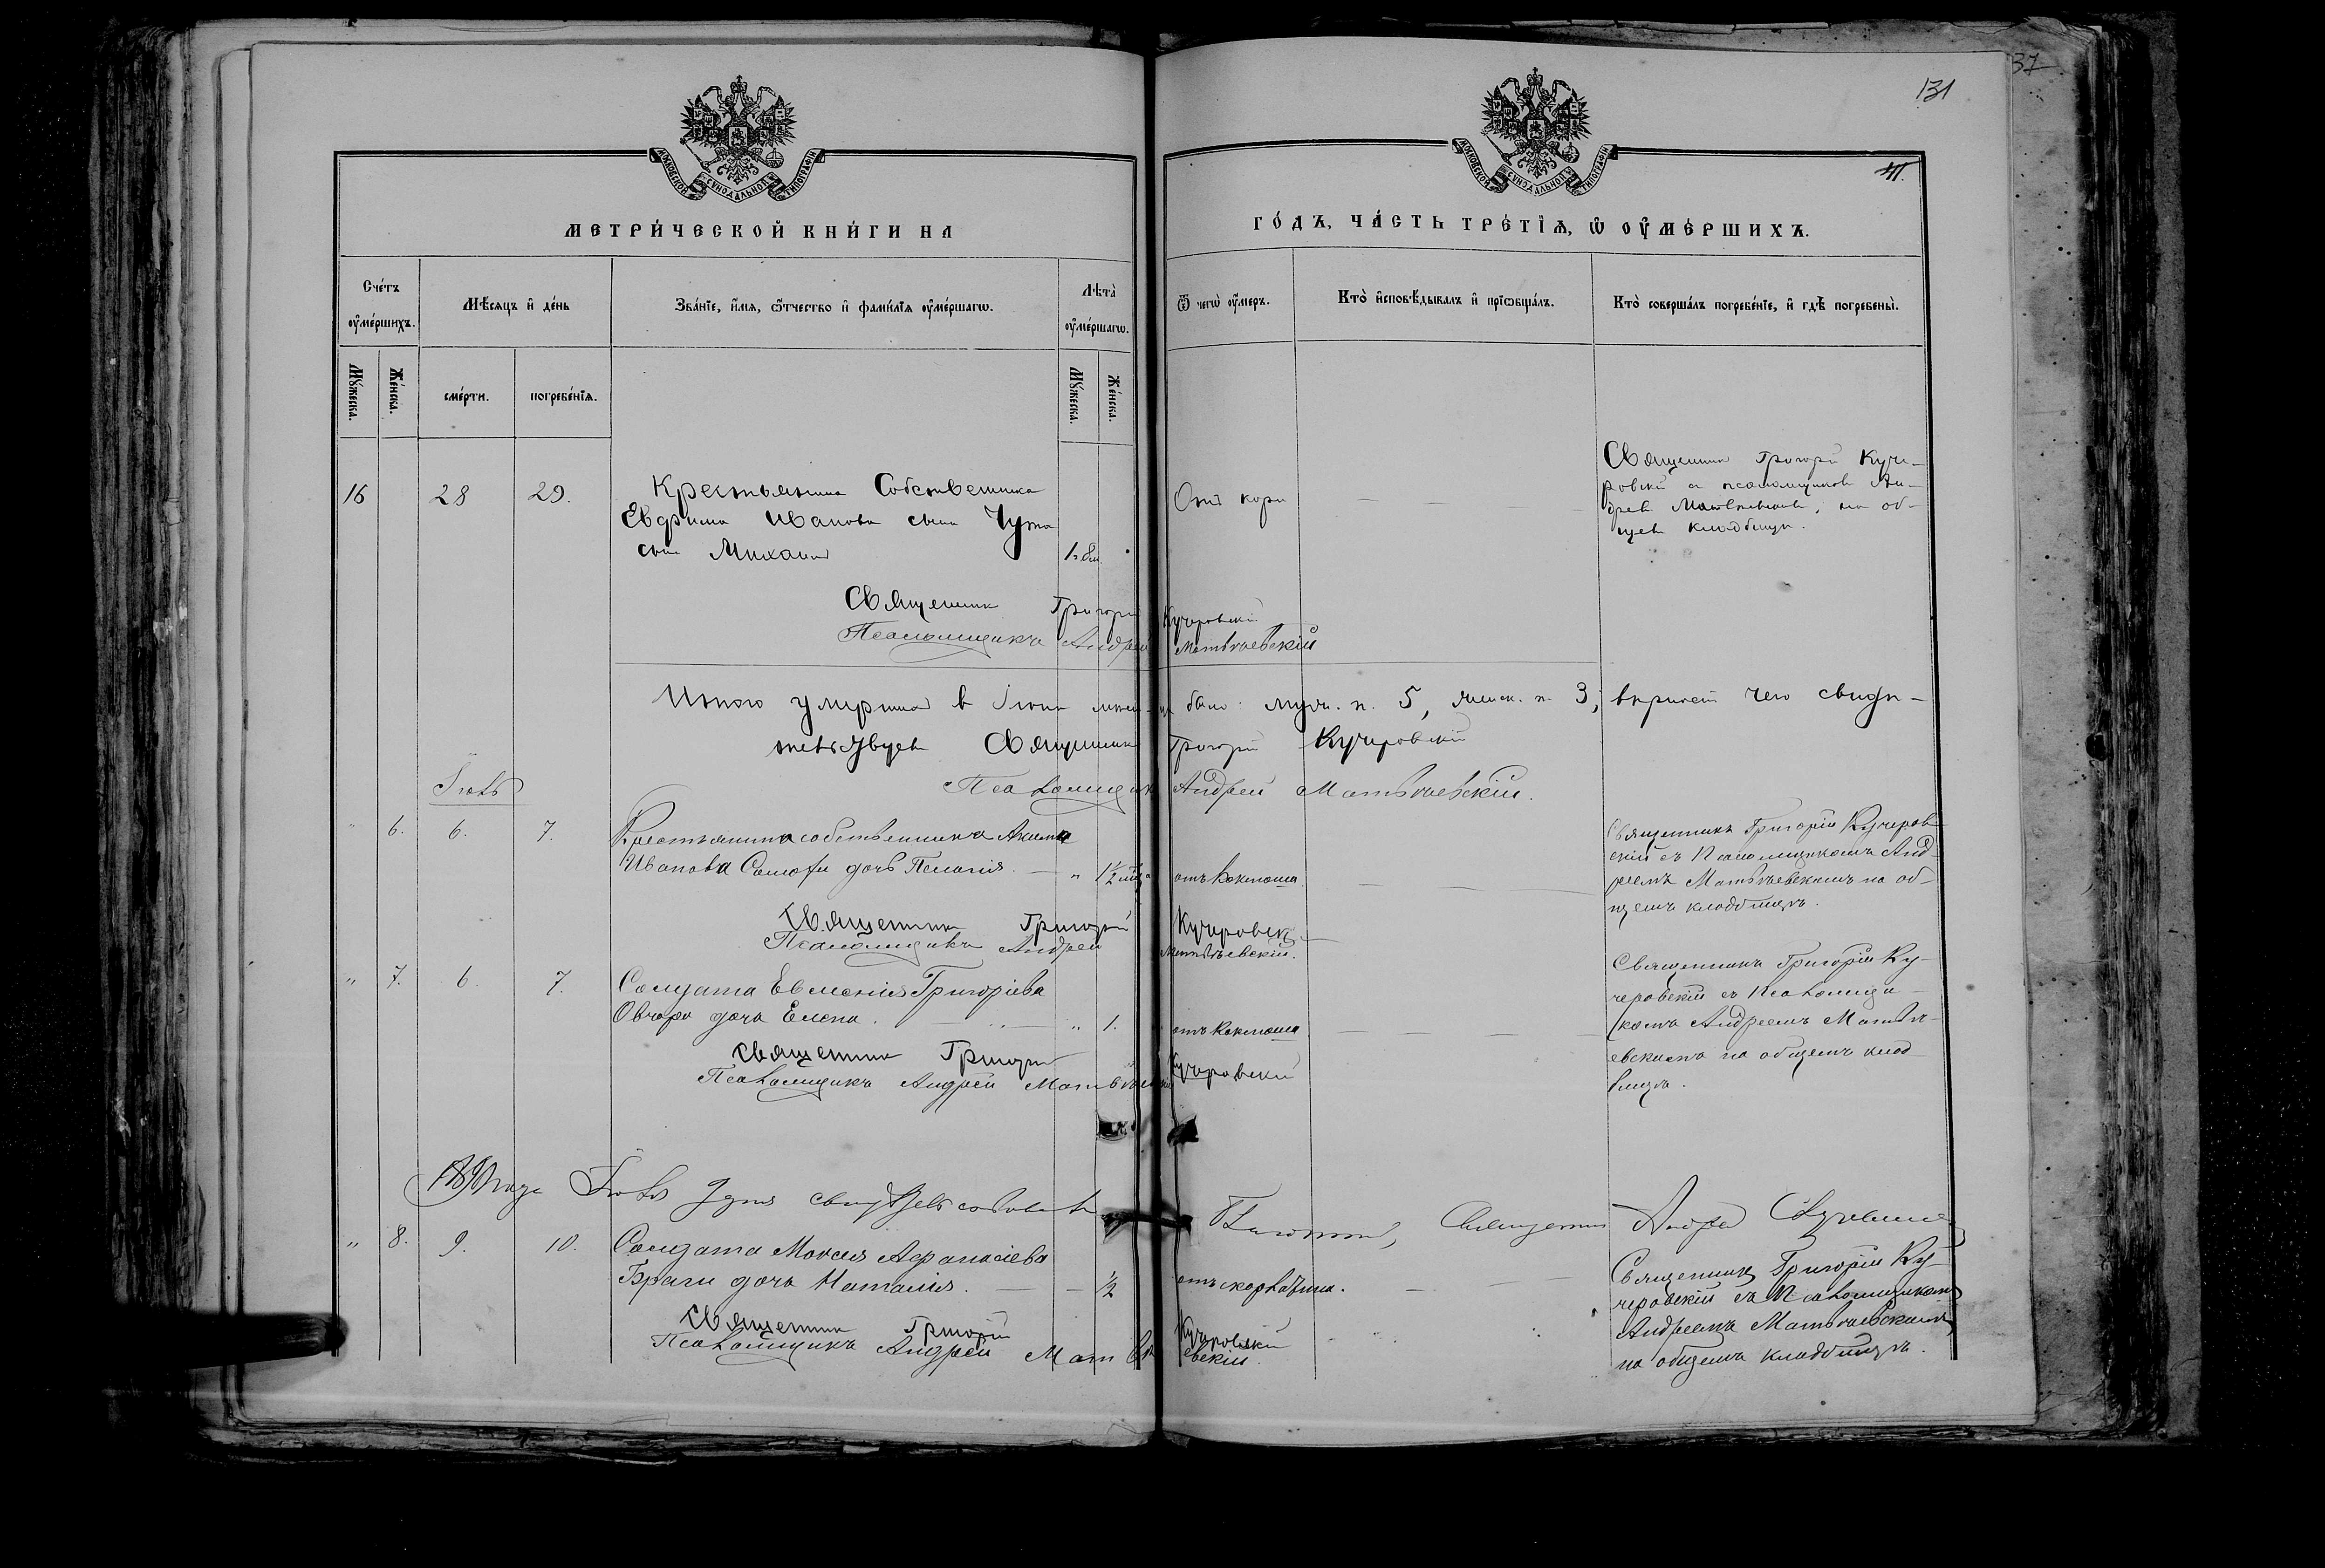 37
131
МОСКОВСКОЙ СѴНОДАЛЬНОЙ ТИПОГРАФІИ
МОСКОВСКОЙ СѴНОДАЛЬНОЙ ТИПОГРАФІИ
МЕТРИ́ЧЕСКОЙ КНИ́ГИ НА
ГО́ДЪ, ЧА́СТЬ ТРЕ́ТІѦ, Ѡ ОУ҆МЕ́РШИХЪ.
Сче́тъ оу҆ме́ршихъ.
Мѣ́сяцъ и҆ де́нь
Зва́нїе, и҆́мя, ѻ҆́тчество и҆ фами́лїя оу҆ме́ршагѡ.
Лѣта̀ оу҆ме́ршагѡ.
Ѿ чегѡ̀ оу҆́меръ.
Кто̀ и҆сповѣ́дывалъ и҆ прїѡбща́лъ.
Кто̀ соверша́лъ погребе́нїе, и҆ гдѣ̀ погребены̀.
Мꙋ́жеска.
Же́нска.
сме́рти.
погребе́нїя.
Мꙋ́жеска.
Же́нска.
16 28 29. Крестьянина Собственника
Евфима Иванова сына Чума
сын Михаил
От кори
Священник Григорій Куче-
ровскій с псаломщиком Ан-
дреем Матвѣевским, на об-
щем кладбищѣ.
Священник Григорій Кучеровскій
Псаломщикъ Андрей Матвѣевскій
Итого умерших в Іюнѣ мѣсяцѣ было: муж. п. 5, женск. п. 3, вѣрность чего свидѣ-
тельствует Священник Григорій Кучеровскій
Псаломщик Андрей Матвѣевскій.
Іюль
" 6. 6. 7. Крестьянина собственника Акима
Иванова дочь Пелагія. " 1½
отъ коклюша
Священникъ Григорій Кучеров-
скій съ Псаломщикомъ Анд-
реемъ Матвѣевскимъ на об-
щемъ кладбищѣ.
Священник Григорій Кучеровск
Псаломщикъ Андрей Матвѣевскій.
" 7. 6. 7. Солдата Евменія Григоріева
Овчара дочь Елена. " 1.
отъ коклюша
Священникъ Григорій Ку-
черовскій съ Псаломщи-
комъ Андреемъ Матвѣ-
евскимъ на общемъ клад-
бищѣ.
Священник Григорій Кучеровскій
Псаломщикъ Андрей Матвѣевскій
года Іюля 9 дня свидѣтельствовал
Благочинный, Священник Андрей
" 8. 9. 10. Солдата Моисея Афанасіева
Браги дочь Наталія. ½
отъ скарлатина.
Священникъ Григорій Ку-
черовскій съ Псаломщикомъ
Андреемъ Матвѣевскимъ
на общемъ кладбищѣ.
Священник Григорій Кучеровскій
Псаломщикъ Андрей Матвѣевскій.